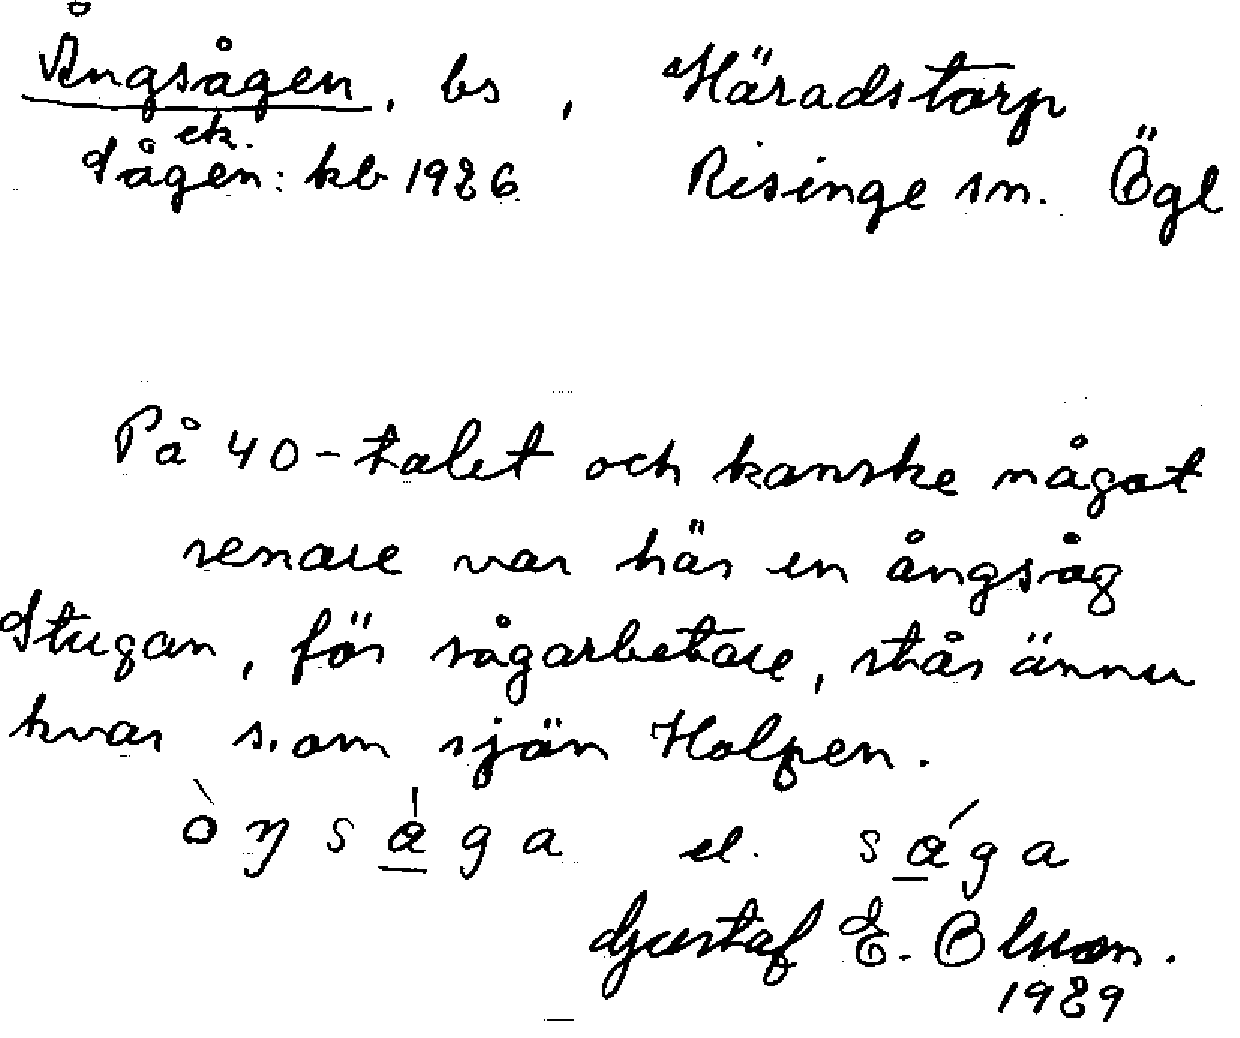 Ångsågen, bs, Häradstorp
ek.
Sågen: kb 1926 Risinge sn. Ögl
På 40-talet och kanske något
senare var här en ångsåg
Stugan, för sågarbetare, står ännu
kvar s.om sjön Holpen.
òŋsa̱̍ga el. sá̱ga
Gustaf E.
1929